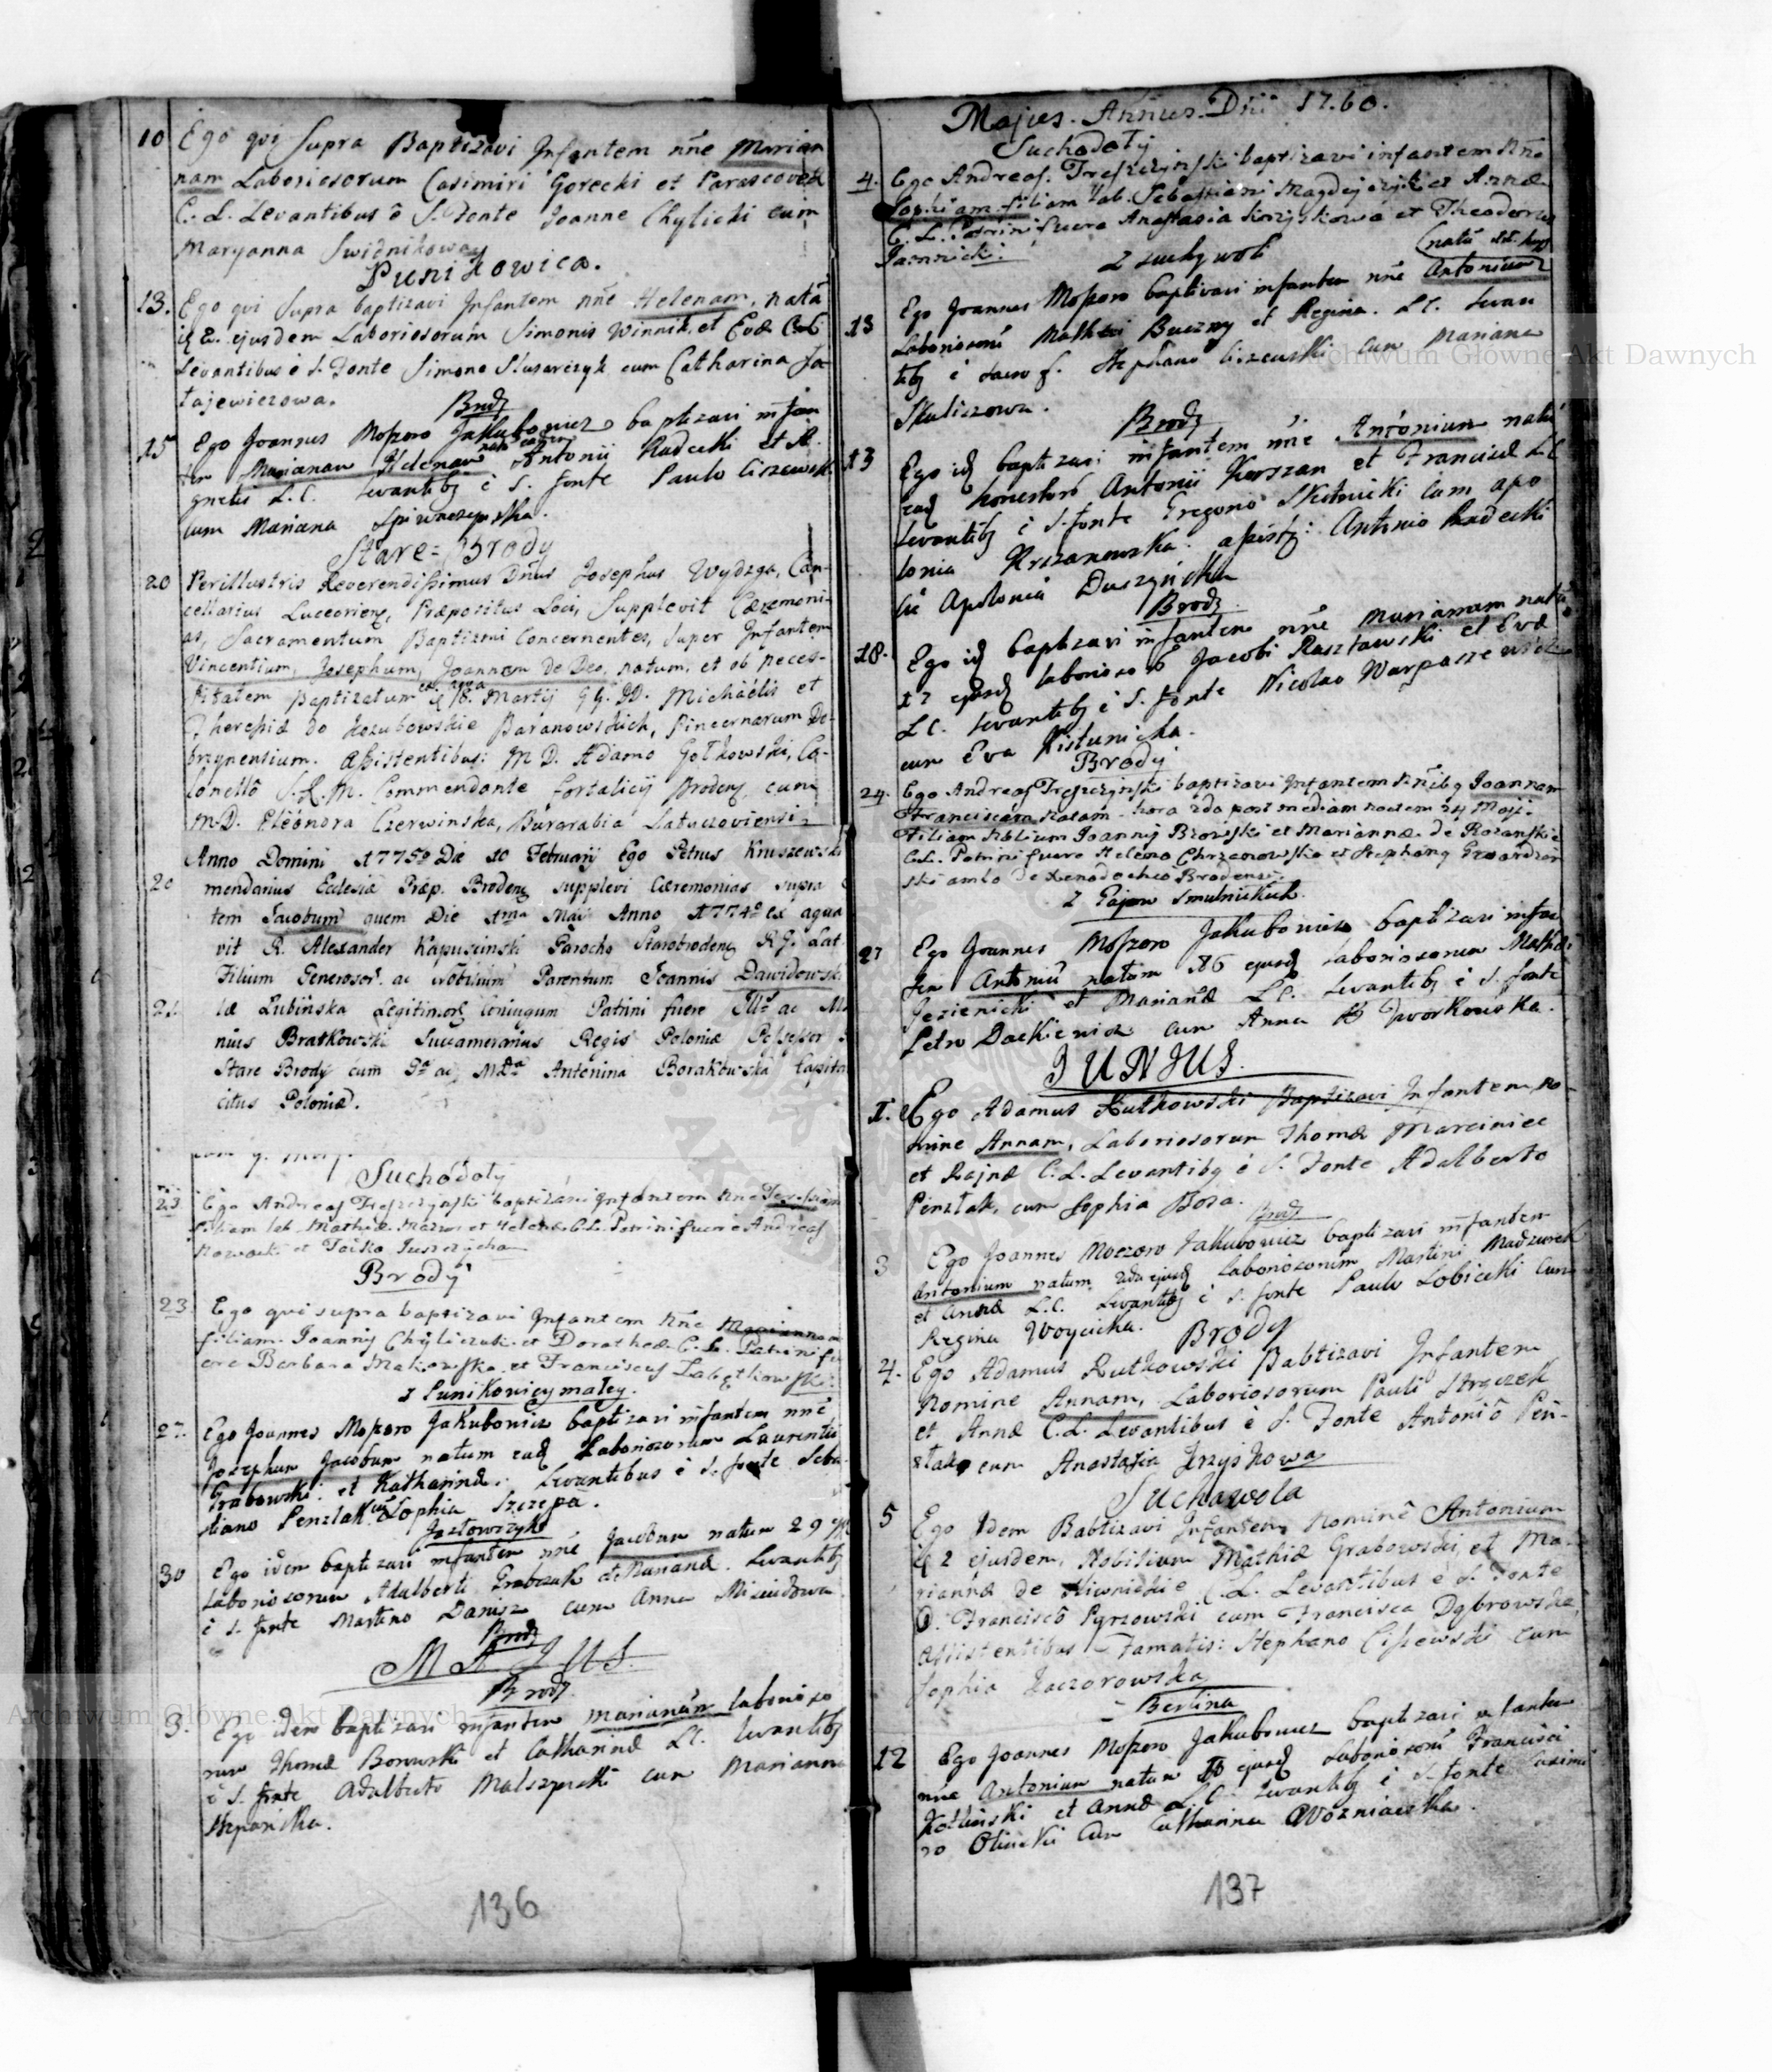 10 Ego qui Supra Baptizavi Infantem nñe Marian
nam Laboriosorum Casimiri Gorecki et Parascovæ
C. L. Levantibus è S. Fonte Joanne Chylicki cum
Maryanna Swidnikowa
Punikowica.
13. Ego qui Supra baptizavi Infantem nñe Helenam, natã
ejusdem Laboriosorum Simonis Winnik et Evæ C.L.
Levantibus è S. Fonte Simone Slusarczyk cum Catharina
tajewiczowa.
Brody
15 Ego Joannes Moszoro Jakubowicz baptizavi infan
tem Mariannam Helenam Antonii Radecki et A
gnetis L.C. levantibz è S. fonte Paulo Ciszewski
cum Mariana
Stare=Brody
20 Perillustris Reverendissimus Dñus Josephus Wydzga, Can-
cellarius Luceorienz, Præpositus Loci, Supplevit Cæremoni-
as, Sacramentum Baptizmi Concernentes, super Infantem
Vincentium, Josephum, Joannem de Deo, natum, et ob neces-
sitatem Baptizatum ex aqua 18. Martij GG. DD. Michaëlis et
Theresiæ do Kozubowskie Baranowskich, Pincernarum Do-
brzynensium. Assistentibus: M. D. Adamo Gołkowski, Co-
lonellõ S.R.M. Commendante Fortalicij Brodenz cum
M.D. Eleonora Czerwinska, Burgrabia Latyczoviensi
Anno Domini 1775º Die 10 Februarij Ego Petrus Kruszewski
20 mendarius Ecclesiæ Præp. Brodenz supplevi Cæremonias supra
tem Jacobum quem Die 1ma Maij Anno 1774º ex aqua
vit R. Alexander Kapuscinski Parochg Starobrodenz R.G. Lat
Filium Generosor. ac Nobilium Parentum Joannis Dawidowski
21. læ Lubinska Legitimorz Coniugum Patrini fuere Mlis ac M
nius Bratkowski Succamerarius Regis Poloniæ Possessor
Stare Brody cum Ga ac Mda Antonina Borakowska Capita
citus Poloniæ.
Suchodoly
23. Ego Andreas Treszczynski baptizavi Infantem nñe Teresiam
filiam lab. Mathiæ Mazur et Helenæ C.L. Patrini fuere Andreas
Nowacki et
Brody
23. Ego qui supra baptizavi Infantem nñe Mariannam
filiam Joannis Chyliczuk et Dorotheæ C.L. Patrini fu
ere Barbara Makowska et Franciscus Labęthowski
z Punikowicy małey.
27. Ego Joannes Moszoro Jakubowicz baptizavi infantem nñe
Josephum Jacobum natum eadz Laboriosorum Laurentii
Grabowski et Katharinæ. Levantibus è S. fonte Seba
stiano Penzlak cum Sophia Szczepa.
Jazłowczyk
30 Ego idem baptizavi infantem nñe Jacobum natum 29
Laboriosorum Adalberti Grabczuk et Marianæ. levantibz
è S. fonte Martino Danisz cum Anna
Brody
MAJUS.
Brody
3. Ego idem baptizavi infantem mariannam laborioso
rum Thomæ Borowski et Catharinæ LC. levantibz
è S. fonte Adalberto cum Marianna
136
Majus. Annus. Dñi 1760.
Suchodoły
4. Ego Andreas Treszczynski baptizavi infantem nñe
Sophiam filiam lab. Sebastiani et Annæ
C. L. Patrini fuere Anastasia Krzyskowa et Theodorus
Jasnicki.
z suchywoli
13 Ego Joannes Moszoro baptizavi infantem nñe Antonium
Laboriosorũ Mathei Buczny et Regina. LC. levan
tibz è sacro f. Stephano Ciszewski cum Mariana
Skuliszowa.
Brody
13 Ego idz baptizavi infantem nñe Antonium natũ
eadz honestorũ Antonii Korszan et Francisca LC
levantibz è S. fonte Gregorio Skotnicki cum apo
lonia Krszanowska. assistz: Antonio Radecki
Apolonia Duszyńska
Brody
18. Ego idz baptizavi infantem nñe mariannam natã
17 ejusdz laboriosorũ Jacobi Rasztawski et Evæ
L.C. levantibz è S. fonte Nicolao
cum Eva
Brody
24. Ego Andreas Treszczynski baptizavi Infantem Joannam
Franciscam Natam hora 2da post mediam noctem 24 Maji
Filiam Nblium Joannis Brzoski et Mariannæ de Rozanskie
C.L. Patrini fuere Helena Chrzanowska et Stephang Gwardzin
ski ambo de Xenodochio Brodensi.
27 Ego Joannes Moszoro Jakubowicz baptizavi infan
tem Antoniũ natum 26 ejusdz Laboriosorum Mathæi
Jezienicki et Marianæ LC. levantibz è S. fonte
Petro Dackiewicz cum Anna Dworkowska.
JUNJUS.
I. Ego Adamus Rutkowski Baptizavi Infantem no-
mine Annam, Laboriosorum Thomæ Marciniec
et Rajnæ C.L. Levantibg è S. Fonte Adalberto
Penzlak, cum Sophia Boza.
Brody
3 Ego Joannes Moszoro Jakubowicz baptizavi infantem
Antonium natum 2da ejusdz Laboriosorum Martini Madzurek
et Annæ L.C. levantibz è S. fonte Paulo Łobicki cum
Regina Woycicka.
Brody
4. Ego Adamus Rutkowski Babtizavi Infantem
Nomine Annam, Laboriosorum Pauli Strączek
et Annæ C.L. Levantibus è S. Fonte Antoniõ Pen-
zlak, cum Anastasia Krzyskowa
Suchawola
5 Ego Idem Babtizavi Infantem Nominê Antonium
2 ejusdem, Nobilium Mathiæ Grabowski, et Ma-
riannæ de Kiwnickie C.L. Levantibus è S. Fonte
Franciscõ Pyrzowski cum Francisca Dąbrowska,
Assistentibus Famatis: Stephano Ciszewski cum
Sophia Kaczorowska
Berlina
12 Ego Joannes Moszoro Jakubowicz baptizavi infantem
nñe Antonium natum ejusdz Laboriosorũ Francisci
Kotlinski et Annæ L.C. levantibz è S. fonte Casimi
ro Olinski cum Catharina Wozniacka.
137
Archiwum Główne Akt Dawnych
Archiwum Główne Akt Dawnych